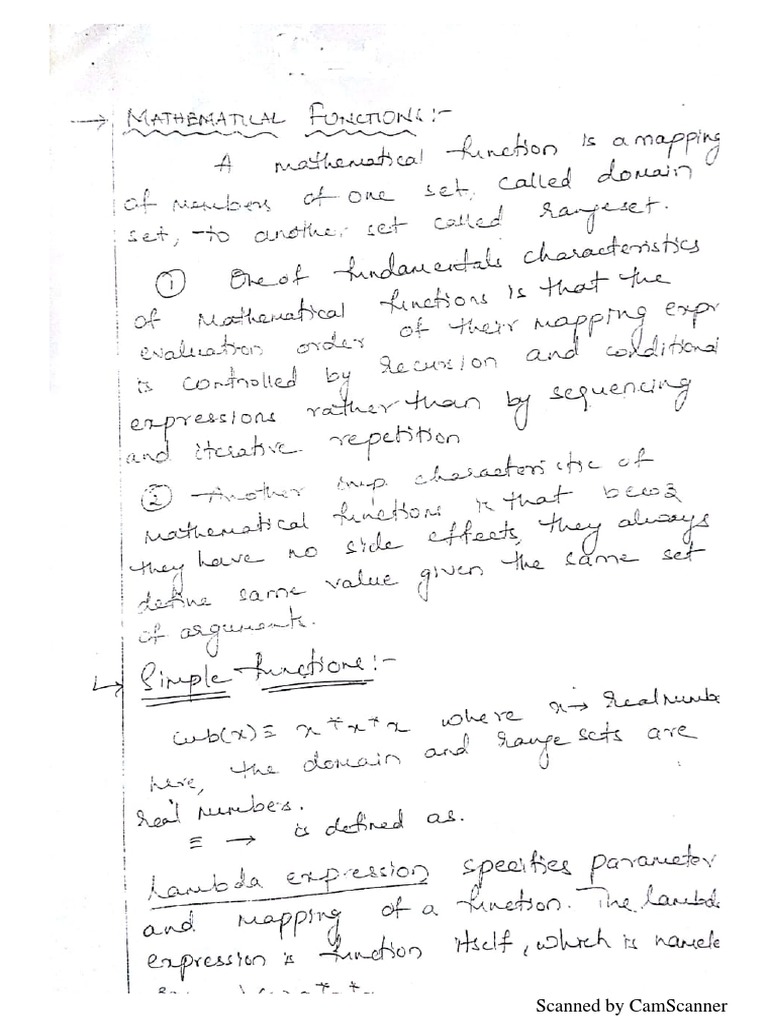 → MATHEMATICAL FUNCTIONS:-
A mathematical function is a mapping
of members of one set, called domain
set, to another set called rangeset.
① One of fundamentals characteristics
of Mathematical functions is that the
evaluation order of their mapping expr
is controlled by recursion and conditional
expressions rather than by sequencing
and iterative repetition
② Another imp. characteristic of
Mathematical functions is that becoz
they have no side effects, they always
define same value given the same set
of arguments.
↳ Simple functions:-
cub(x) ≡ x*x*x where x→ Real numbe
here, the domain and range sets are
real numbers.
≡ → is defined as.
Lambda expression specifies parameter
and mapping of a function. The lambd
expression is function itself, which is namele
Scanned by CamScanner